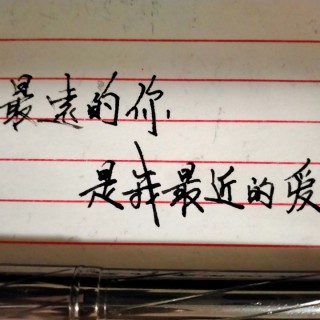 最遠的你
是我最近的爱